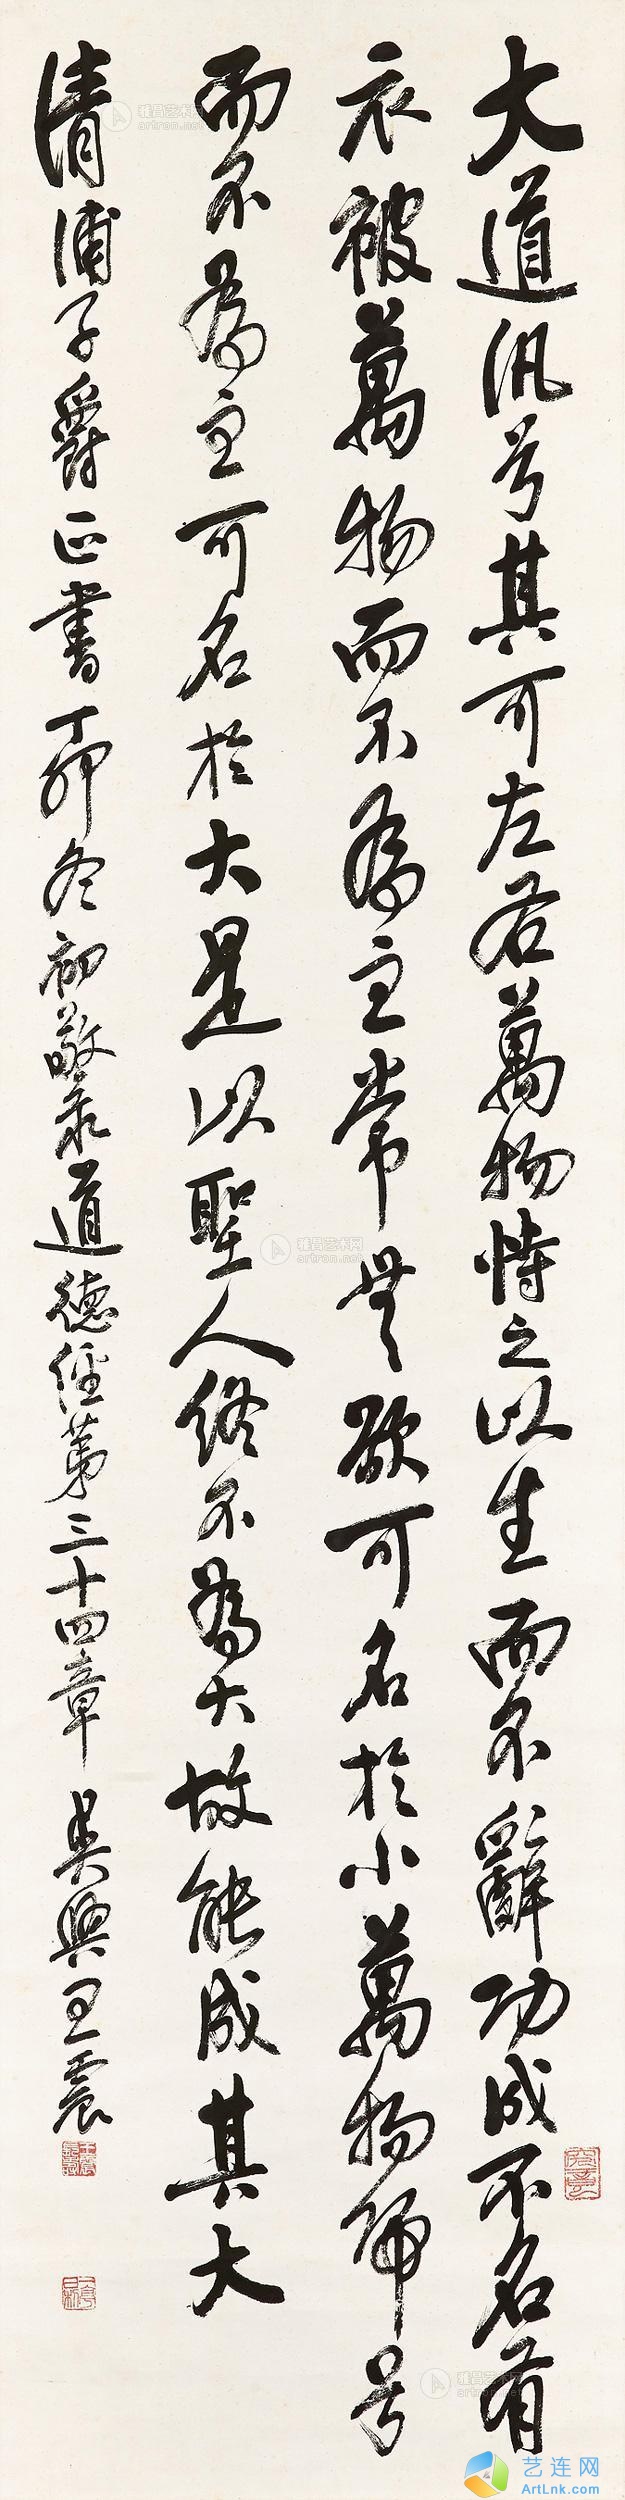 大道汎兮其可左右萬物恃之以生而不辭功成不名有
衣被萬物而不為主常無欲可名於小萬物歸兮
而不為主可名於大是以聖人終不為大故能成其大
清浦子爵正書丁卯冬初敬录道德經第三十四章 吳興王震
雅昌艺术网
artron.net
雅昌艺术网
artron.net
雅昌艺术网
artron.net
艺连网
ArtLnk.com